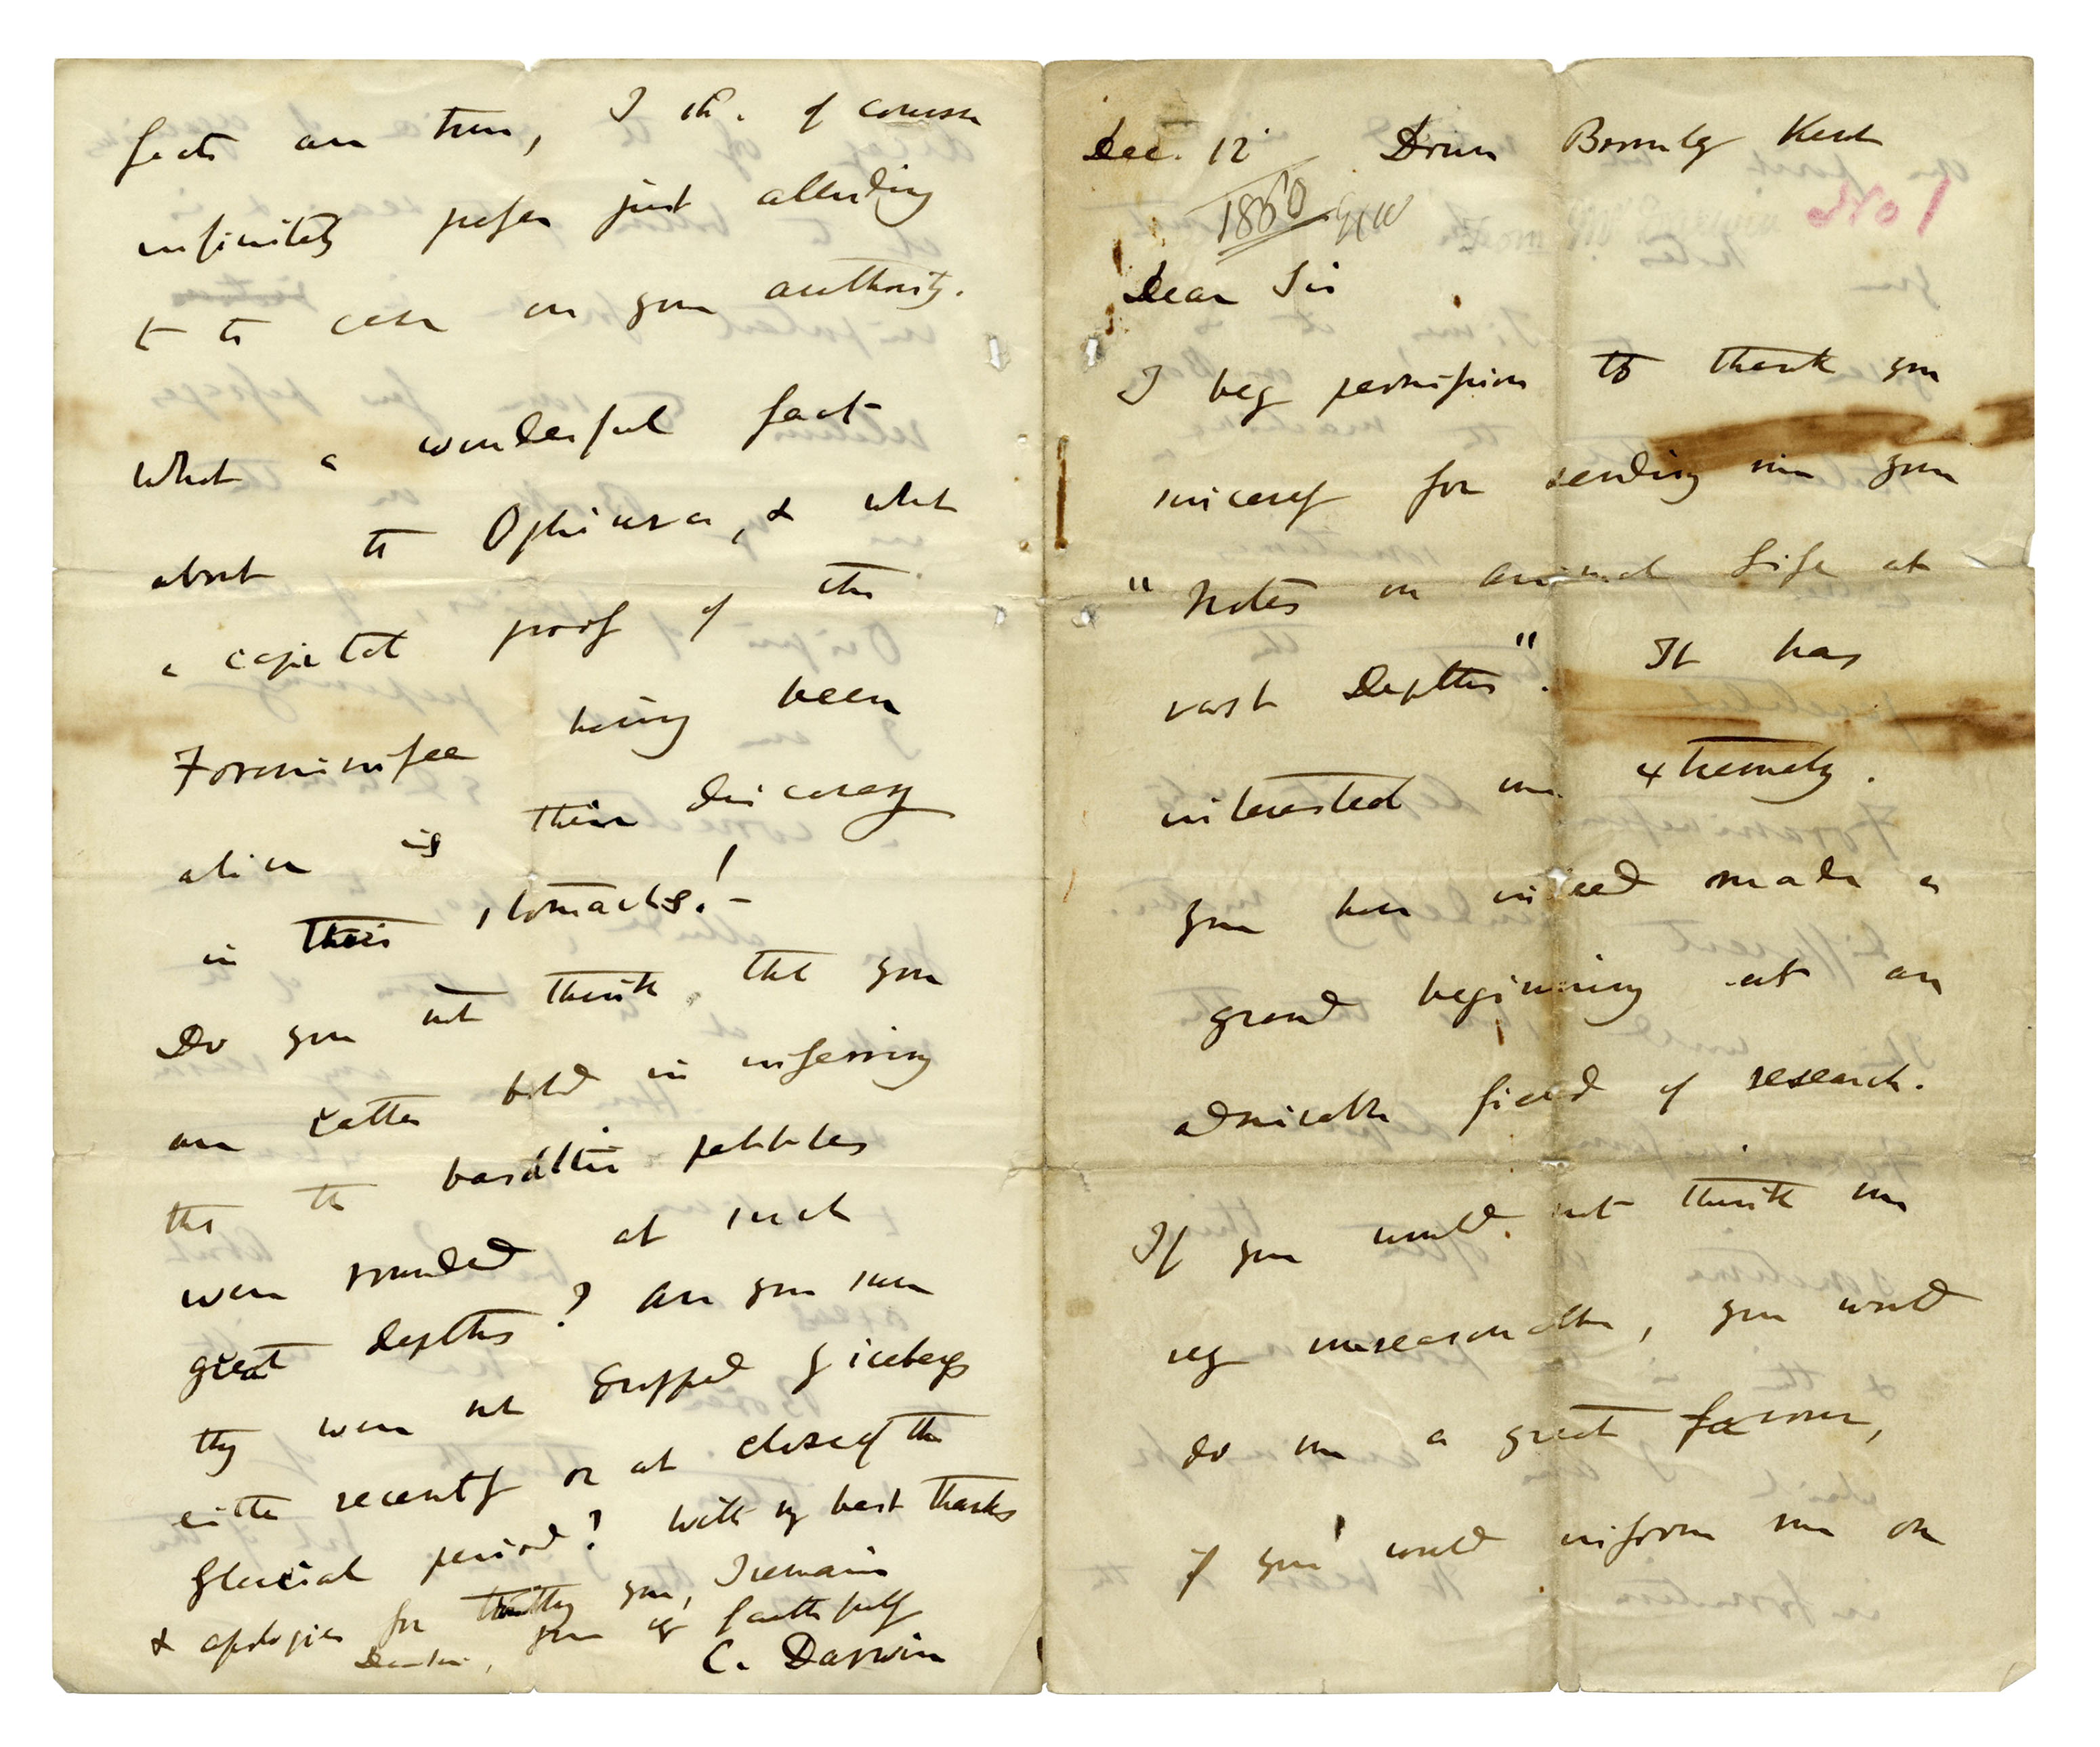 Dec. 12 Down Bromley Kent
1860 GCW
No 1
Dear Sir
I beg permission to thank you
sincerely for sending me your
"Notes on animal life at
vast Depths". It has
interested me extremely.
You have indeed made a
grand beginning at an
admirable field of research.
If you would not think me
very unreasonable, you would
do me a great favour,
if you would inform me on
facts are true, I shd. of course
infinitely prefer just alluding
to case on your authority.
What a wonderful fact
about the Ophiura, & what
a capital proof of the
Foraminifera having been
alive is their discovery
in their stomachs! —
Do you not think that you
are rather bold in inferring
that the basaltic pebbles
were rounded at such
great depths? Are you sure
they were not dropped by icebergs
either recently or at close of the
Glacial period? With my best thanks
& apologies for troubling you, I remain
Dear Sir, yours very faithfully
C. Darwin